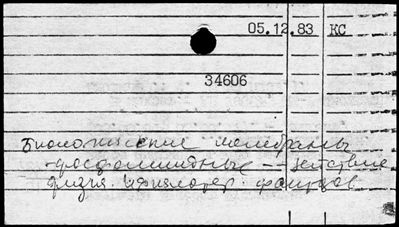 05.12.83 КС
34606
Биологические мембраны
фосфолипидные - действие
физич. и химотер. факторов